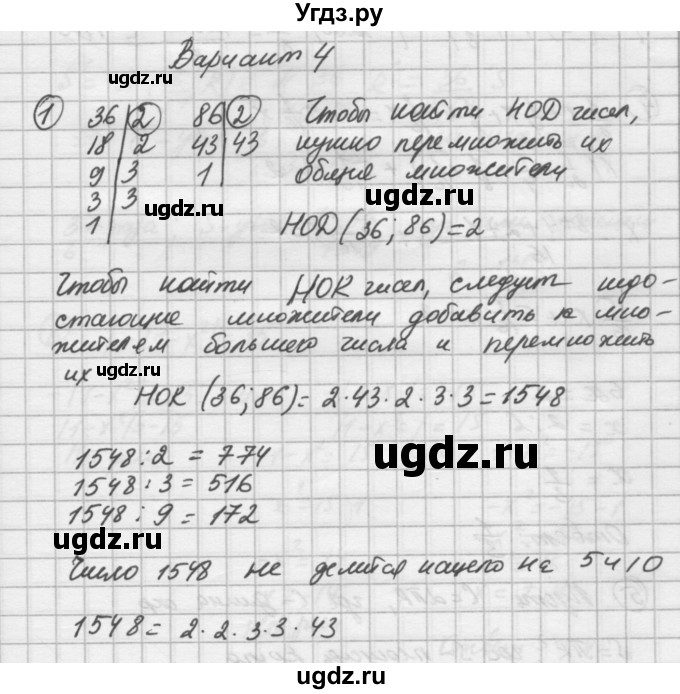 Угдз.ру
Вариант 4
ugdz.ru
① 36 | 2 86 | 2 Чтобы найти НОД чисел,
18 | 2 43 | 43 нужно перемножить их
9 | 3 1 общие множители
3 | 3 ugdz.ru
1 НОД (36; 86) = 2
ugdz.ru
Чтобы найти НОК чисел, следует недо-
стающие множители добавить к мно-
жителем большего числа и перемножить
их
ugdz.ru
НОК (36; 86) = 2·43·2·3·3 = 1548
ugdz.ru
1548 : 2 = 774
1548 : 3 = 516
1548 : 9 = 172
ugdz.ru
Число 1548 не делится нацело на 5 и 10
1548 = 2·2·3·3·43
ugdz.ru
Угдз.ру